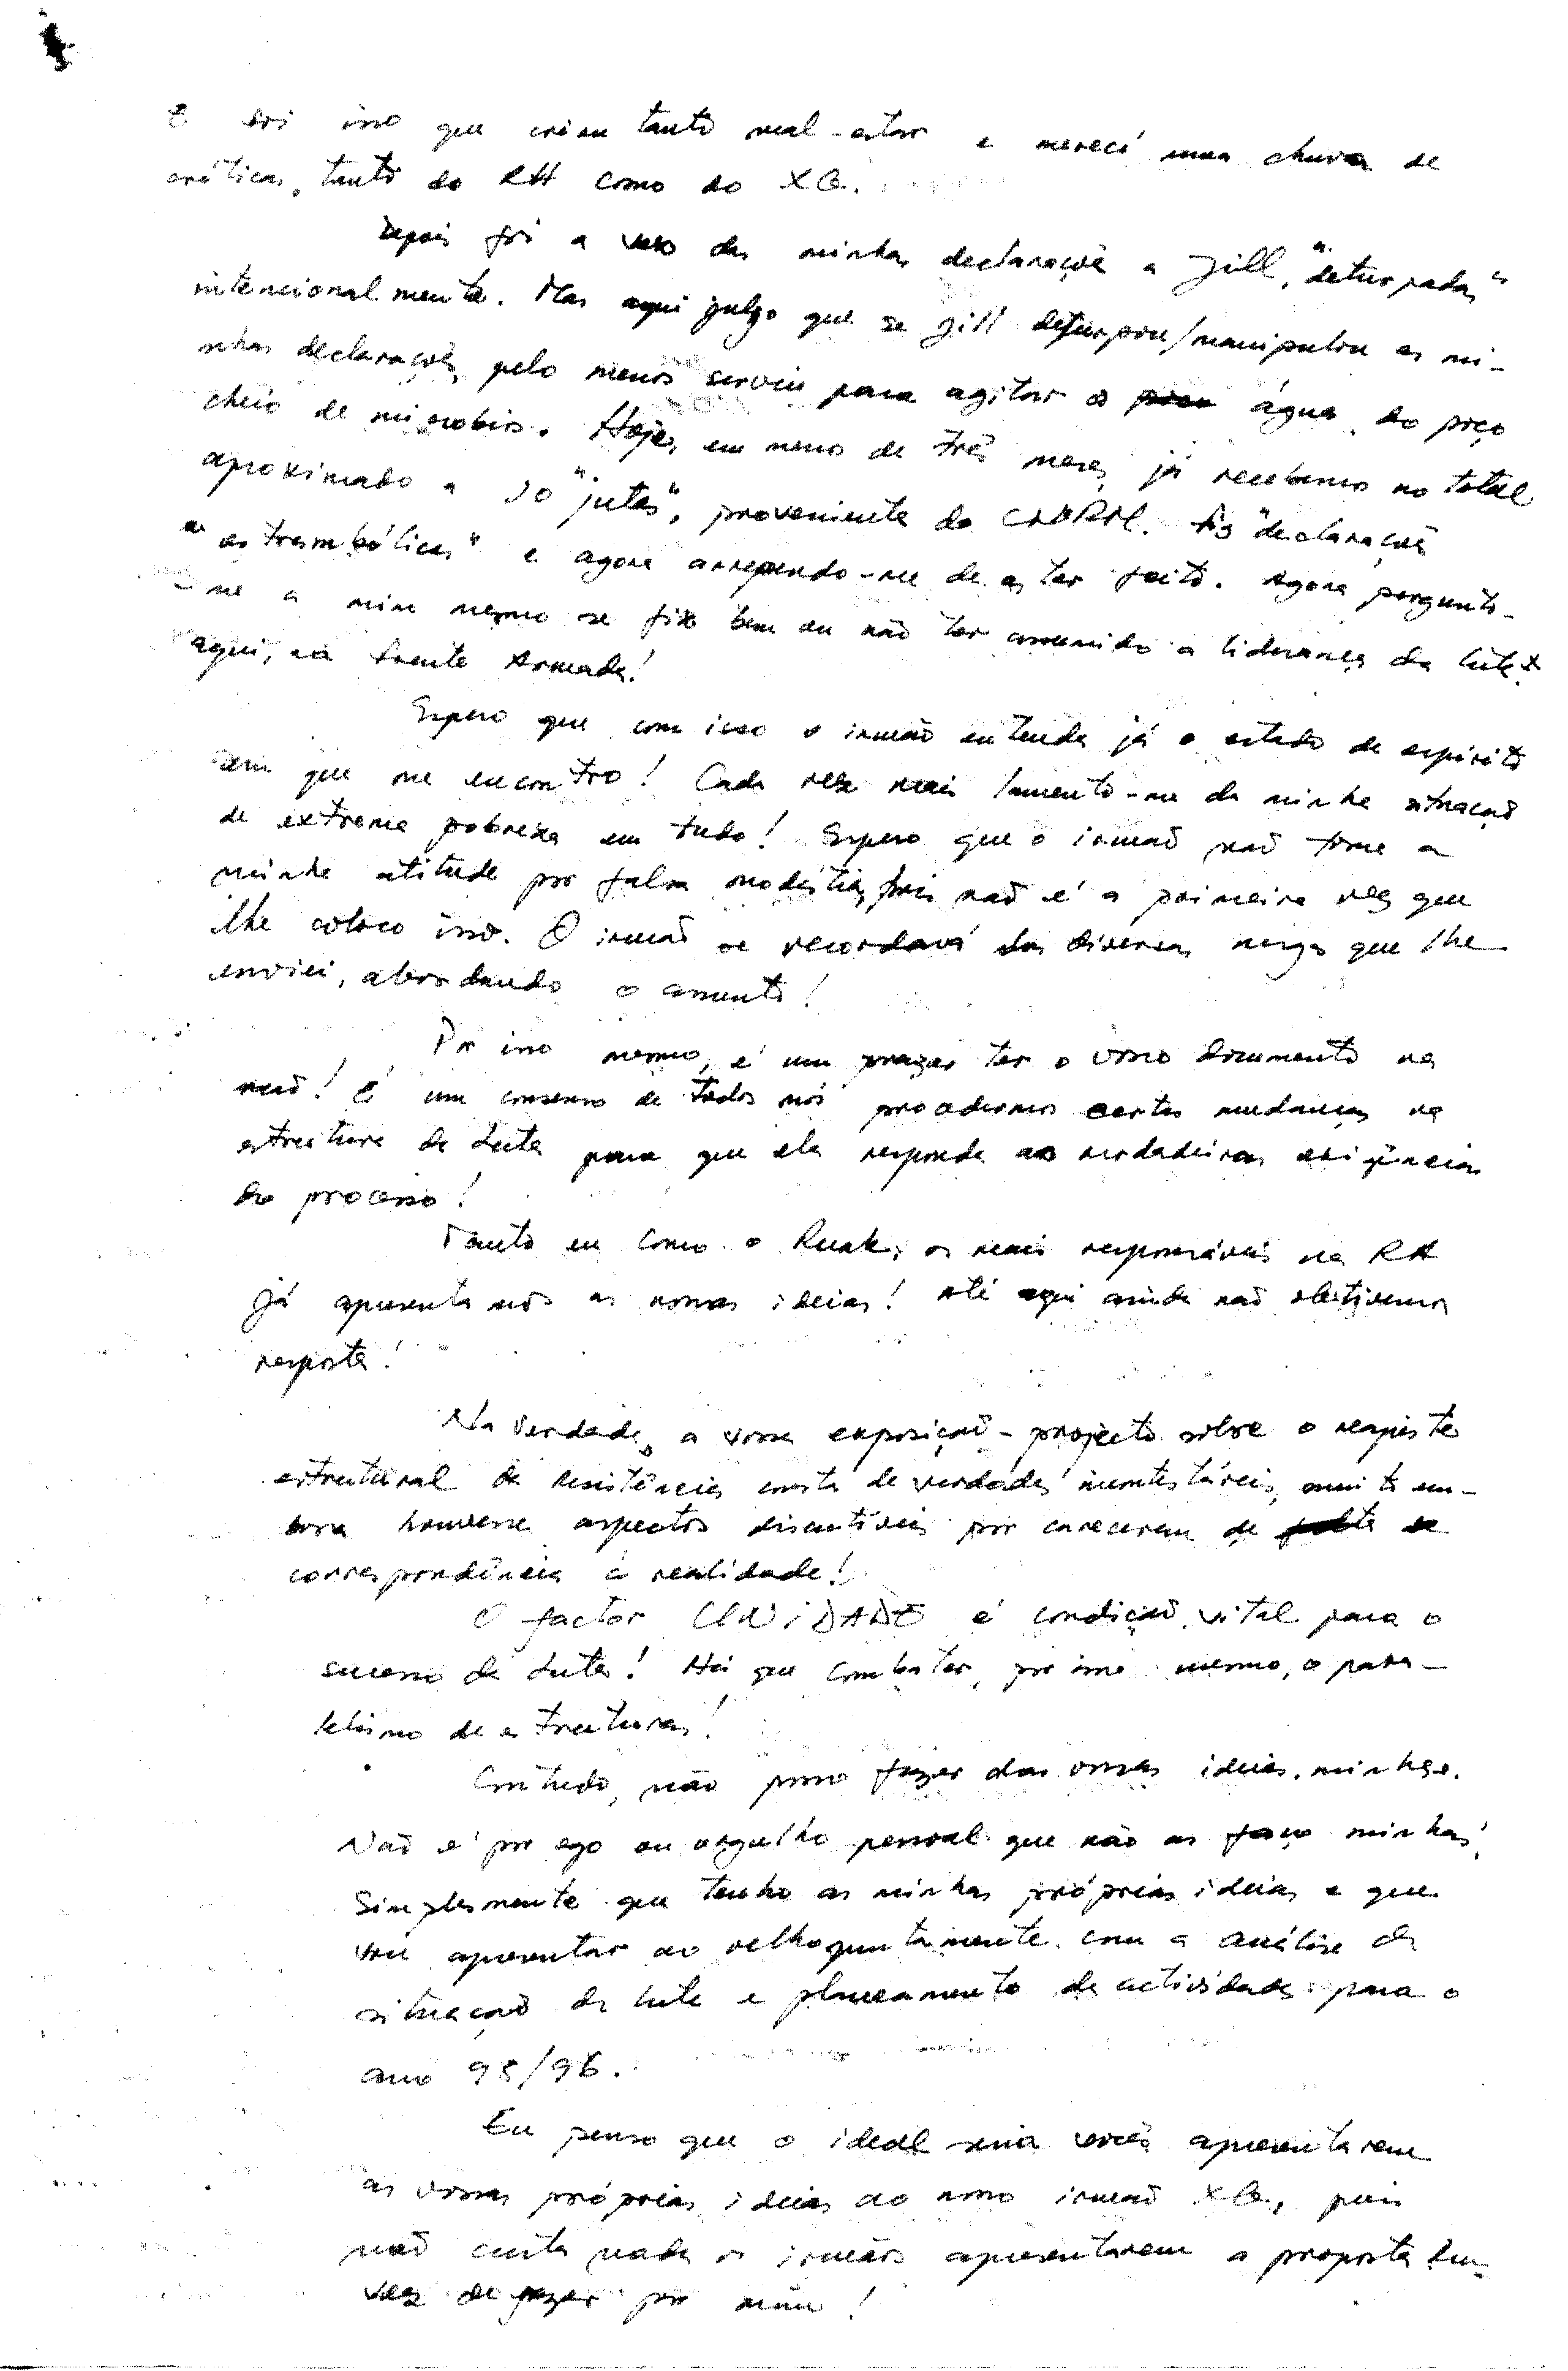 E foi isso que criou tanto mal-estar e mereci uma chuva de
críticas, tanto do RH como do XG.
Depois foi a vez das minhas declarações a Jill, "deturpadas"
intencionalmente. Mas aqui julgo que se Jill deturpou/manipulou as mi-
nhas declarações, pelo menos serviu para agitar a água do poço
cheio de micróbios. Hoje, em menos de três meses, já recebemos no total
aproximado a 30 "jutas", proveniente do CNRM. Fiz "declarações
estrambólicas" e agora arrependo-me de as ter feito. Agora pergunto-
-me a mim mesmo se fiz bem ou não ter assumido a liderança da luta
aqui, na Frente Armada!
Espero que com isso o irmão entenda já o estado de espírito
em que me encontro! Cada vez mais lamento-me da minha situação
de extrema pobreza em tudo! Espero que o irmão não tome a
minha atitude por falsa modéstia, pois não é a primeira vez que
lhe coloco isso. O irmão se recordará das diversas msgs que lhe
enviei, abordando o assunto!
Por isso mesmo, é um prazer ter o vosso documento na
mão! É um consenso de todos nós procedermos certas mudanças na
estrutura da Luta para que ela responda as verdadeiras exigências
do processo!
Tanto eu como o Ruak, os mais responsáveis na RA
já apresentamos as nossas ideias! Até aqui ainda não obtivemos
resposta!
Na verdade, a vossa exposição-projecto sobre o reajuste
estrutural da Resistência consta de verdades incontestáveis, muito em-
bora houvesse aspectos discutíveis por carecerem de
correspondência à realidade!
O factor UNIDADE é condição vital para o
sucesso da Luta! Há que combater, por isso mesmo, o para-
lelismo de estruturas!
Contudo, não posso fazer das vossas ideias, minhas.
Não é por ego ou orgulho pessoal que não as faço minhas!
Simplesmente que tenho as minhas próprias ideias e que
vou apresentar ao velho juntamente com a análise da
situação da luta e planeamento de actividades para o
ano 95/96.
Eu penso que o ideal seria vocês apresentarem
as vossas próprias ideias ao nosso irmão XG, pois
não custa nada os irmãos apresentarem a proposta em
vez de fazer por mim!